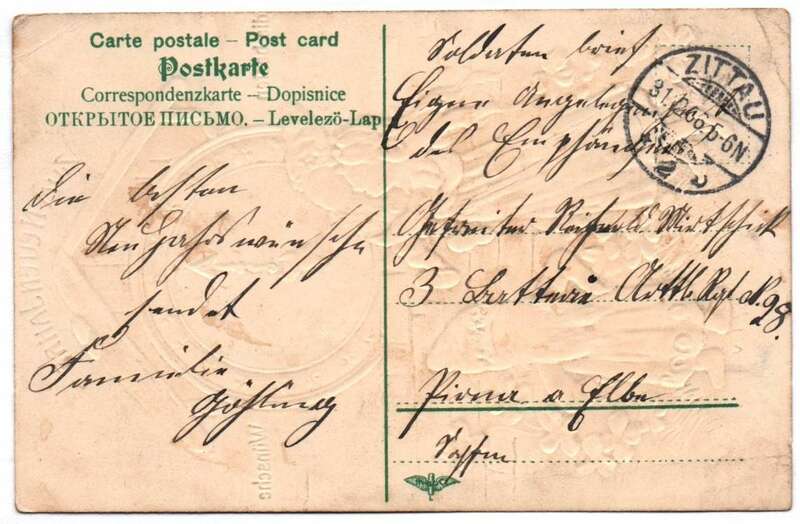 Carte postale – Post card
Postkarte
Correspondenzkarte – Dopisnice
ОТКРЫТОЕ ПИСЬМО. – Levelező-Lap
Die besten
Neujahrswünsche
sendet
Familie
Soldaten brief
Eigne Angelegenheit
des Empfängers
Gefreiter Reinhold
3 Batterie Artl. Rgt. No. 28.
Pirna a Elbe
Sachsen
ZITTAU
31.12.06.5-6N